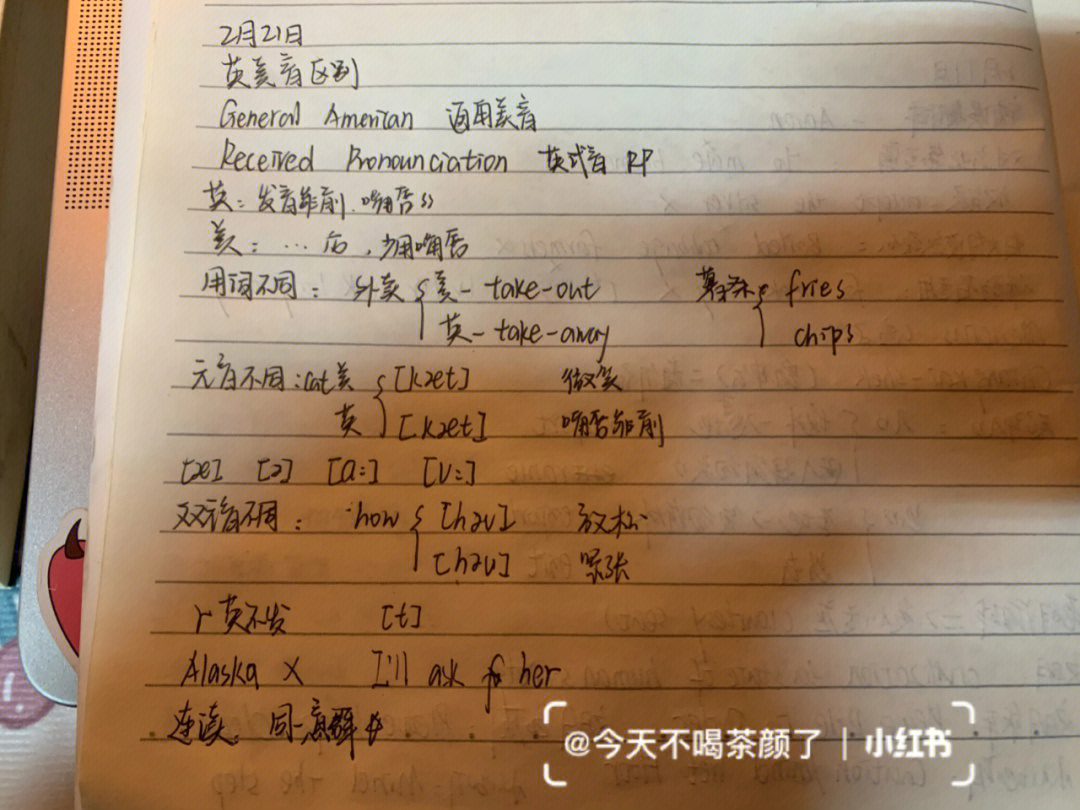 2月21日
英美音区别
General American 通用美音
Received Pronounciation 英式音 RP
英：发音靠前．嘴唇
美：… 后，少用嘴唇
用词不同：外卖 美－take-out 薯条 fries
英－take-away chips
元音不同：cat 美 [kæt] 微笑
英 [kæt] 嘴唇靠前
[æ] [ɑ:] [ʊ:]
双元音不同：how [haʊ] 放松
[haʊ] 紧张
r 英不发 [t]
Alaska × I'll ask her
连读．同一意群中
@今天不喝茶颜了 | 小红书